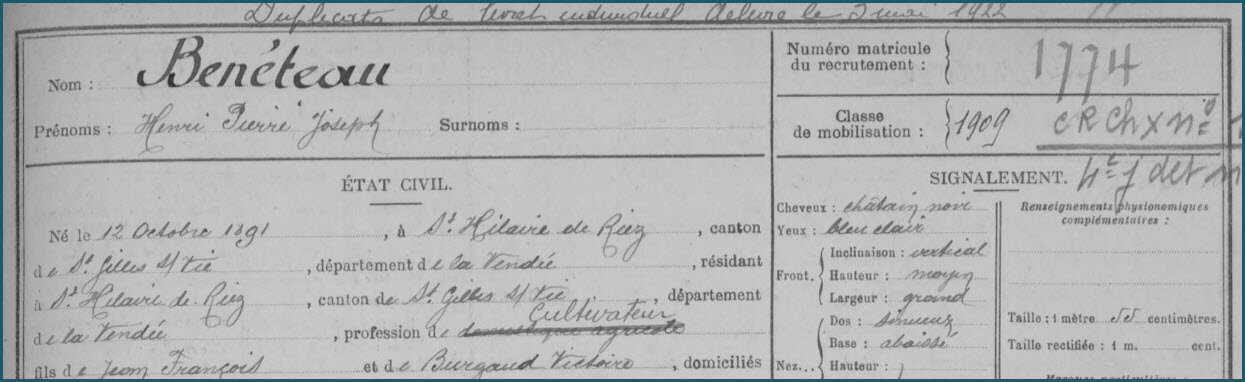 Duplicata de livret individuel délivré le 3 mai 1922
Nom : Benéteau
Prénoms : Henri Pierre Joseph Surnoms :
Numéro matricule du recrutement : 1774
Classe de mobilisation : 1909
ÉTAT CIVIL.
Né le 12 Octobre 1891, à St Hilaire de Riez, canton
de St Gilles s/ Vie, département de la Vendée, résidant
à St Hilaire de Riez, canton de St Gilles s/ Vie, département
Cultivateur
de la Vendée, profession de domestique agricole
fils de Jean François et de Burgaud Victoire, domiciliés
SIGNALEMENT.
Cheveux : châtain noir
Yeux : bleu clair
Front.
Inclinaison : vertical
Hauteur : moyen
Largeur : grand
Nez...
Dos : sinueux
Base : abaissé
Hauteur :
Renseignements physionomiques
complémentaires :
Taille : 1 mètre centimètres.
Taille rectifiée : 1 m. cent.